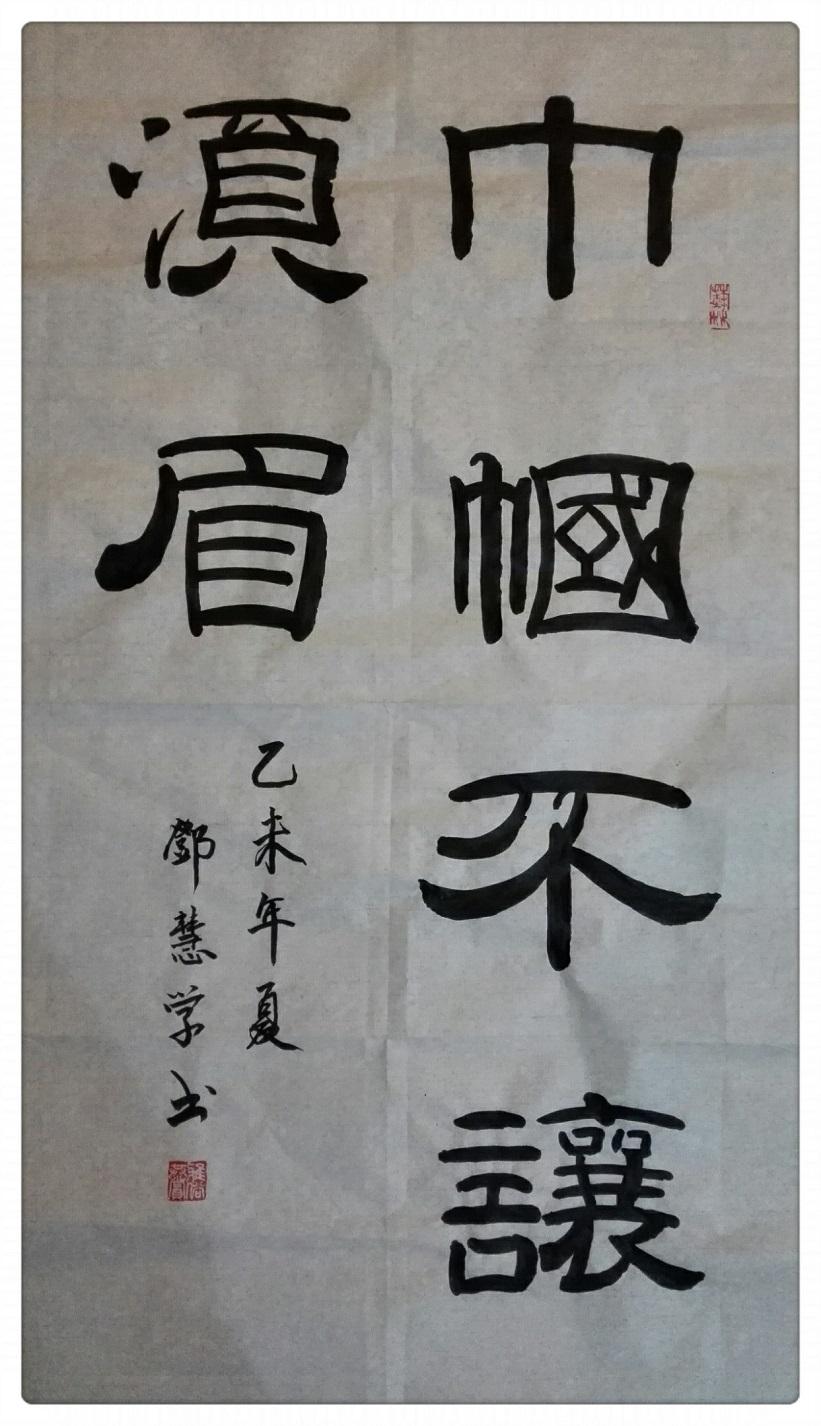 巾幗不讓
湏眉
乙未年夏
鄧慧学书